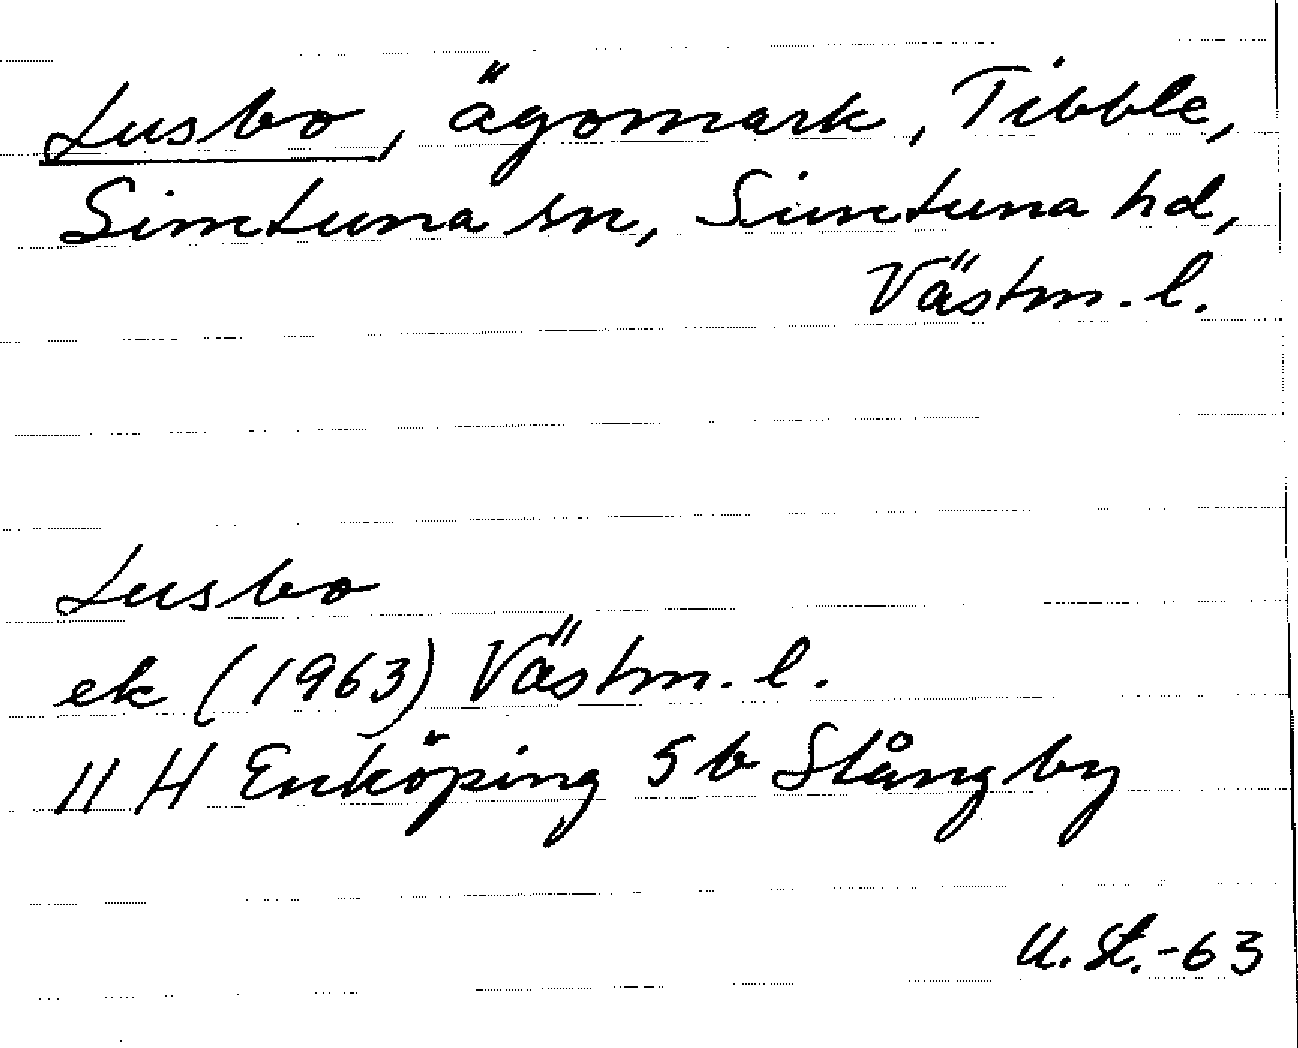 Lusbo, ägomark, Tibble,
Simtuna sn, Simtuna hd,
Västm. l.
Lusbo
ek (1963) Västm. l.
11 H Enköping 5 b Stångby
U. St. -63